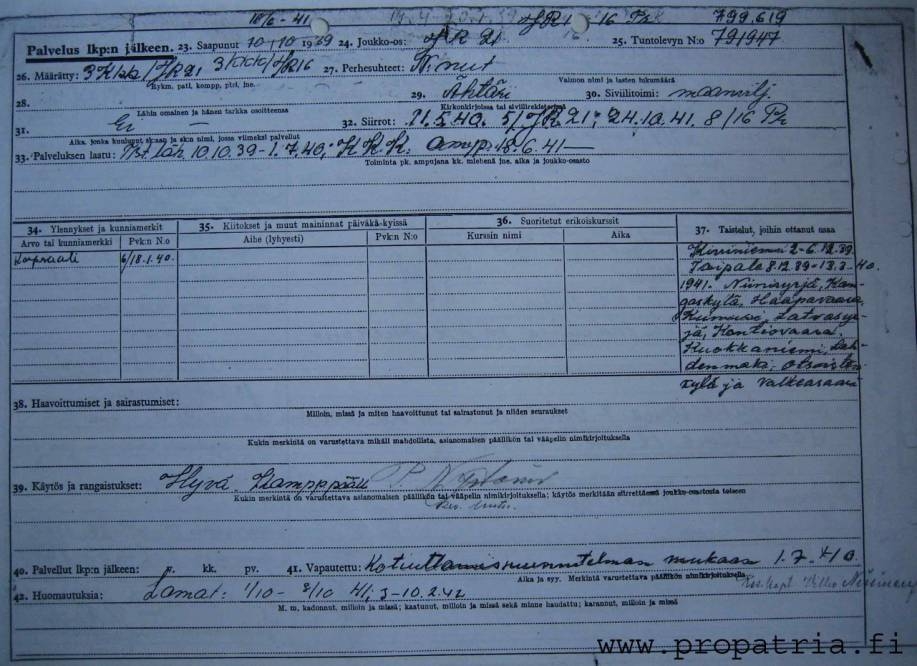 18/6 - 41 JR 16 799619
Palvelus lkp:n jälkeen. 23. Saapunut 10/10 1939 24. Joukko-os: JR 21 25. Tuntolevyn N:o 791947
26. Määrätty: 3 Kkk/JR 21 3/Kkk/JR16 27. Perhesuhteet: N:nut
Rykm. patl, kompp, ptri, jne. Vaimon nimi ja lasten lukumäärä
28. 29. Ähtäri 30. Siviilitoimi: maanvilj.
Lähin omainen ja hänen tarkka osoitteensa Kirkonkirjoissa tai siviilirekisterissä
31. Ei — 32. Siirrot: 21.5.40. 5/JR 21; 24.10.41. 8/16 Pr
Aika, jonka kuulunut sk:aan ja sk:n nimi, jossa viimeksi palvellut
33. Palveluksen laatu: 10.10.39-1.7.40; K.K.K. amp. 18.6.41—
Toiminta pk. ampujana kk. miehenä jne. aika ja joukko-osasto
34. Ylennykset ja kunniamerkit 35. Kiitokset ja muut maininnat päiväkä-kyissä 36. Suoritetut erikoiskurssit 37. Taistelut, joihin ottanut osaa
Arvo tai kunniamerkki Pvk:n N:o Aihe (lyhyesti) Pvk:n N:o Kurssin nimi Aika
Korpraali 6/18.1.40.
Kiviniemi 2-6.12.39.
Taipale 8.12.39-13.3-40.
1941. Niinisyrjä, Kan-
gaskylä, Haapavaara,
Kumuri, Latvasyr-
jä, Kontiovaara.
Kuokkaniemi, Leh-
denmäki, Otsois ten
kylä ja Valkeasaari
38. Haavoittumiset ja sairastumiset:
Milloin, missä ja miten haavoittunut tai sairastunut ja niiden seuraukset
Kukin merkintä on varustettava mikäli mahdollista, asianomaisen päällikön tai vääpelin nimikirjoituksella
39. Käytös ja rangaistukset: Hyvä. Komppääll.
Kukin merkintä on varustettava asianomaisen päällikön tai vääpelin nimikirjoituksella; käytös merkitään siirrettäessä joukko-osastosta toiseen
40. Palvellut lkp:n jälkeen: v. kk. pv. 41. Vapautettu: Kotiuttamissuunnitelman mukaan 1.7.40.
Aika ja syy. Merkintä varustettava päällikön nimikirjoituksella
42. Huomautuksia: Lomat: 1/10 - 8/10 41; 3-10.2.42 Res.kapt. Vilho
M. m. kadonnut, milloin ja missä; kaatunut, milloin ja missä sekä minne haudattu; karannut, milloin ja missä
www.propatria.fi